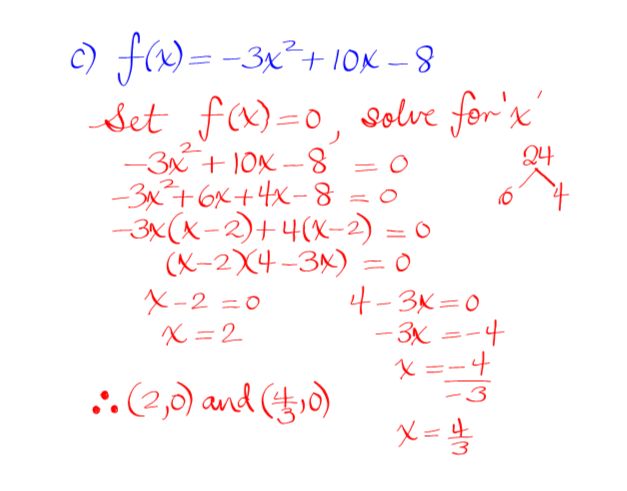 c) f(x) = -3x² + 10x - 8
Set f(x) = 0, solve for 'x'
-3x² + 10x - 8 = 0
24
-3x² + 6x + 4x - 8 = 0
6 4
-3x(x-2) + 4(x-2) = 0
(x-2)(4-3x) = 0
x - 2 = 0 4 - 3x = 0
x = 2 -3x = -4
x = -4/-3
∴ (2,0) and (4/3,0)
x = 4/3